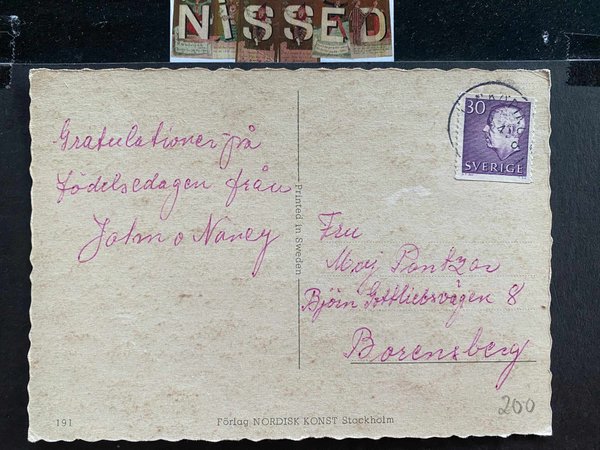 NISSED
Gratulationer på
födelsedagen från
John o Nancy
Printed in Sweden
30
SVERIGE
Fru
Maj Pantzar
Björn Gottliebsvägen 8
Borensberg
200
191
Förlag NORDISK KONST Stockholm